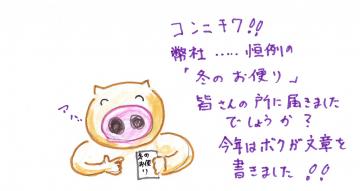 コンニチワ!!
弊社……恒例の
「冬のお便り」
皆さんの所に届きました
でしょうか？
今年はボクが文章を
書きました!!
冬の
お便り